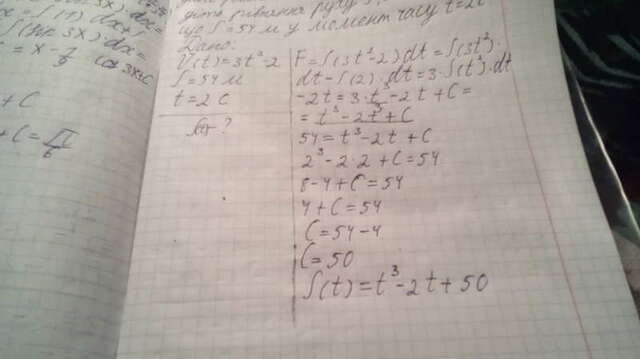 ∫(1) dx +
∫(sin 3x) dx =
+ C
+ C = π/6
діть рівняння руху
що S = 54 м у момент часу t = 2 с
Дано:
V(t) = 3t² - 2
S = 54 м
t = 2 с
F = ∫(3t² - 2) dt = ∫(3t²)·
dt - ∫(2)·dt = 3·∫(t²)·dt
- 2t = 3·t³/3 - 2t + C =
= t³ - 2t + C
54 = t³ - 2t + C
2³ - 2·2 + C = 54
8 - 4 + C = 54
4 + C = 54
C = 54 - 4
C = 50
S(t) = t³ - 2t + 50